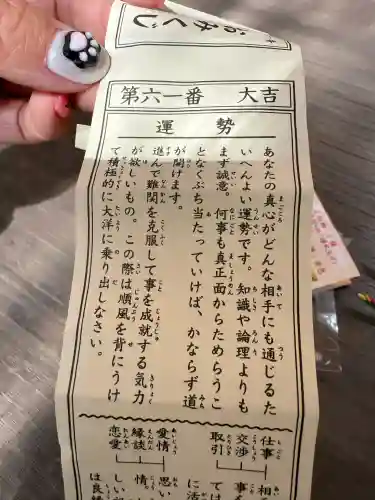 おみくじ
第六一番　大吉
運勢
あなたの真心がどんな相手にも通じるた
いへんよい運勢です。知識や論理よりも
まず誠意。何事も真正面からためらうこ
となくぶち当たっていけば、かならず道
が開けます。
進んで難関を克服して事を成就する気力
が欲しいもの。この際は順風を背にうけ
て積極的に大洋に乗り出しなさい。
仕事
交渉
取引
愛情
縁談
恋愛
思い
情、